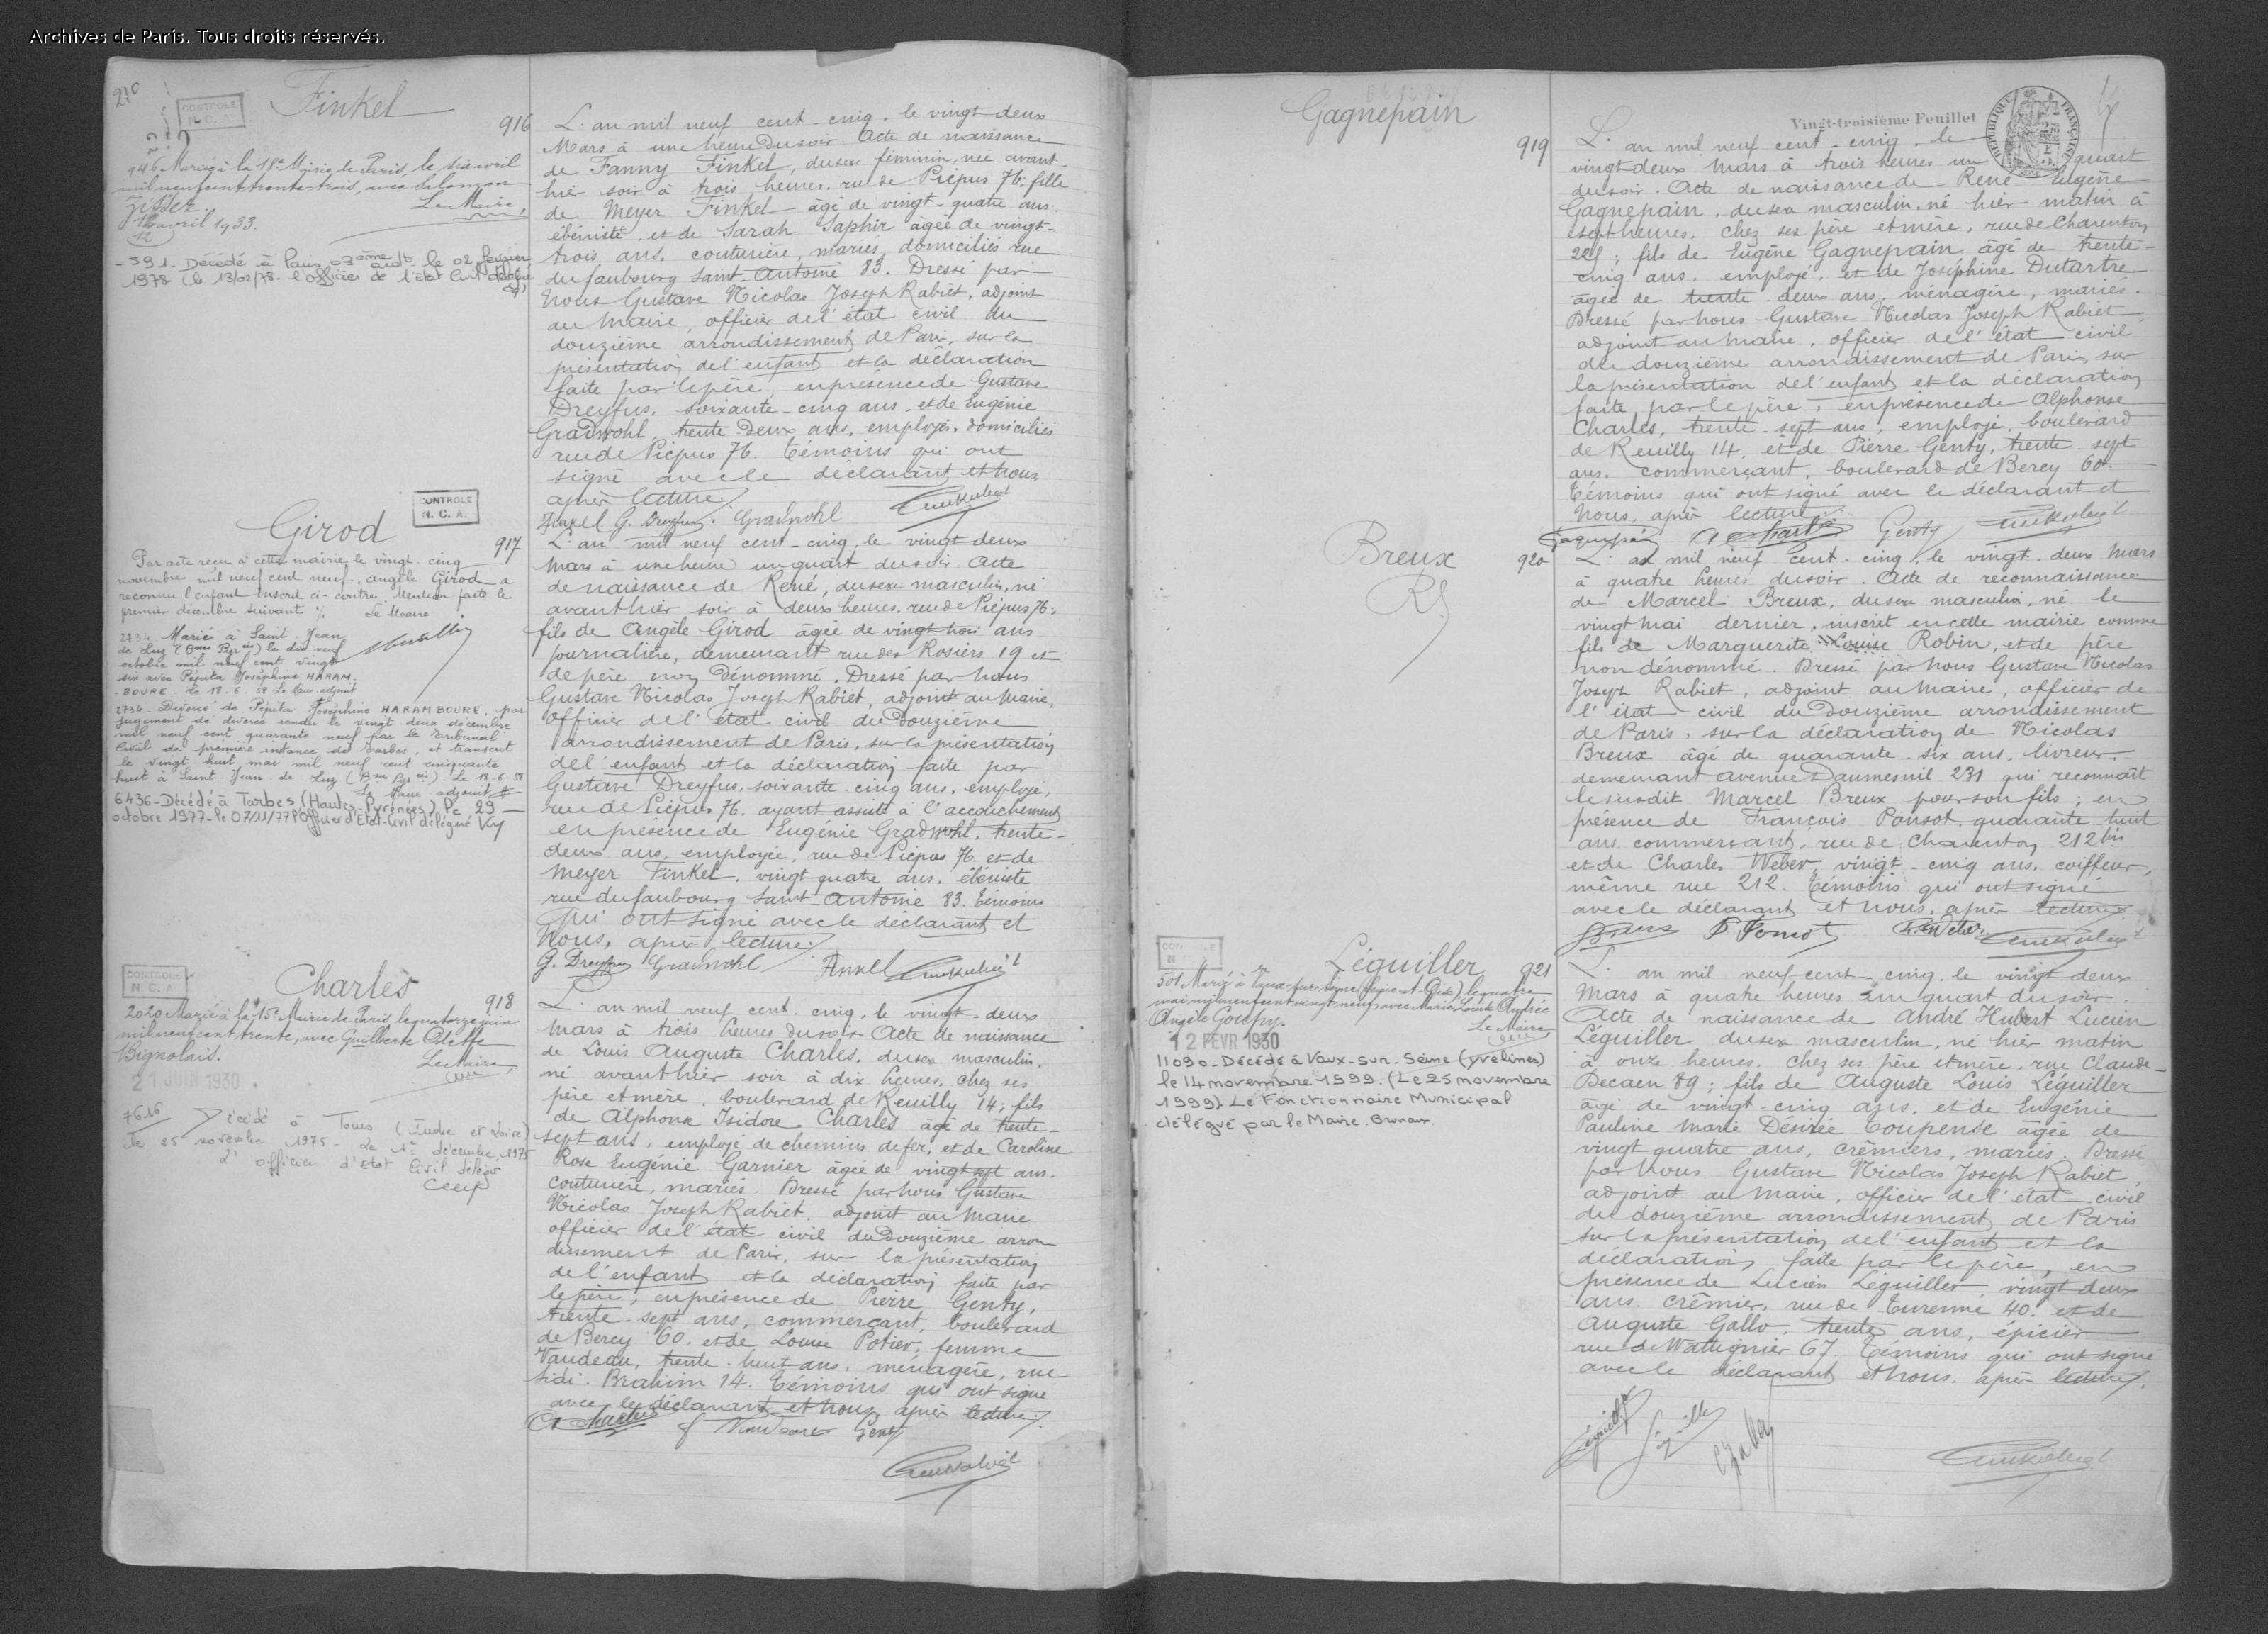 Archives de Paris. Tous droits réservés.
210
CONTROLE
N. C. A.
Finkel
916
146 Mariée à la 18e Mairie de Paris, le six avril
mil neuf cent trente trois, avec Salomon
Le Maire,
avril 1933.
12
- 591 - Décédé à Paris 03ème ardt. le 02 février
1978 (le 13/02/78 - l'officier de l'état Civil délégué
L'an mil neuf cent-cinq, le vingt deux
Mars à une heure du soir. Acte de naissance
de Fanny Finkel, du sexe féminin, née avant-
hier soir à trois heures, rue de Picpus 76; fille
de Meyer Finkel âgé de vingt-quatre ans
ébéniste, et de Sarah Saphir âgée de vingt-
trois ans, couturière, mariés, domiciliés rue
du faubourg Saint-Antoine 83. Dressé par
Nous Gustave Nicolas Joseph Rabiet, adjoint
au Maire, officier de l'état civil du
douzième arrondissement de Paris, sur la
présentation de l'enfant et la déclaration
faite par le père, en présence de Gustave
Dreyfus, soixante-cinq ans, et de Eugénie
Gradwohl, trente-deux ans, employés, domiciliés
rue de Picpus 76. Témoins qui ont
signé avec le déclarant et Nous,
après lecture.
Finkel G. Dreyfus. Gradwohl
CONTROLE
N. C. A.
Girod
917
Par acte reçu à cette mairie, le vingt-cinq
novembre mil neuf cent neuf, Angèle Girod a
reconnu l'enfant inscrit ci-contre. Mention faite le
premier décembre suivant %. Le Maire
2734. Marié à Saint-Jean
de Luz (Bses Pyr.ées) le dix neuf
octobre mil neuf cent vingt
six avec Pépita Joséphine HARAM
-BOURE. Le 18-6-58 Le Maire adjoint
2734. Divorcé de Pépita Joséphine HARAMBOURE, par
jugement de divorce rendu le vingt deux décembre
mil neuf cent quarante neuf par le Tribunal
Civil de première instance de Tarbes, et transcrit
le vingt huit mai mil neuf cent cinquante
huit à Saint-Jean de Luz (Bses Pyr.ées). Le 18-6-58
Le Maire adjoint
6436 - Décédé à Tarbes (Hautes-Pyrénées) le 29 -
octobre 1977 - le 07/11/77 l'Officier d'Etat-Civil délégué
L'an mil neuf cent-cinq, le vingt deux
Mars à une heure un quart du soir. Acte
de naissance de René, du sexe masculin, né
avant hier soir à deux heures, rue de Picpus 76;
fils de Angèle Girod âgée de vingt trois ans
journalière, demeurant rue des Rosiers 19 et
de père non dénommé. Dressé par Nous
Gustave Nicolas Joseph Rabiet, adjoint au Maire,
officier de l'état civil du Douzième
arrondissement de Paris, sur la présentation
de l'enfant et la déclaration faite par
Gustave Dreyfus, soixante-cinq ans, employé,
rue de Picpus 76, ayant assisté à l'accouchement
en présence de Eugénie Gradwohl, trente-
deux ans, employée, rue de Picpus 76, et de
Meyer Finkel, vingt quatre ans, ébéniste
rue du faubourg Saint-Antoine 83. Témoins
qui ont signé avec le déclarant et
Nous, après lecture.
G. Dreyfus Gradwohl Finkel
CONTROLE
N. C. A
Charles
918
2020 Marié à la 15e Mairie de Paris le quatorze juin
mil neuf cent trente, avec Guilberte Odette
Bignolais.
Le Maire,
21 JUIN 1930
7616
Décédé à Tours (Indre et Loire)
le 25 novembre 1975 - Le 1er décembre 1975
L'officier d'Etat Civil délégué
L'an mil neuf cent-cinq, le vingt-deux
Mars à trois heures du soir. Acte de naissance
de Louis Auguste Charles, du sexe masculin,
né avant hier soir à dix heures, chez ses
père et mère, boulevard de Reuilly 14; fils
de Alphonse Isidore Charles âgé de trente-
sept ans, employé de chemins de fer, et de Caroline
Rose Eugénie Garnier âgée de vingt sept ans,
couturière, mariés. Dressé par Nous Gustave
Nicolas Joseph Rabiet, adjoint au Maire
officier de l'état civil du Douzième arron
dissement de Paris, sur la présentation
de l'enfant et la déclaration faite par
le père, en présence de Pierre Genty,
trente-sept ans, commerçant, boulevard
de Bercy 60, et de Louise Potier, femme
Vaudeau, trente-huit ans, ménagère, rue
Sidi-Brahim 14. Témoins qui ont signé
avec le déclarant et Nous après lecture.
Genty
Gagnepain
919
Vingt-troisième Feuillet
RÉPUBLIQUE FRANÇAISE
L'an mil neuf cent-cinq, le
vingt deux Mars à trois heures un quart
du soir. Acte de naissance de René Eugène
Gagnepain, du sexe masculin, né hier matin à
sept heures, chez ses père et mère, rue de Charenton
225; fils de Eugène Gagnepain âgé de trente-
cinq ans, employé, et de Joséphine Dutartre
âgée de trente-deux ans, ménagère, mariés.
Dressé par Nous Gustave Nicolas Joseph Rabiet,
adjoint au Maire, officier de l'état civil
du douzième arrondissement de Paris, sur
la présentation de l'enfant et la déclaration
faite par le père, en présence de Alphonse
Charles, trente-sept ans, employé, boulevard
de Reuilly 14, et de Pierre Genty, trente-sept
ans, commerçant, boulevard de Bercy 60.
Témoins qui ont signé avec le déclarant et
Nous, après lecture.
Gagnepain Charles Genty
Breux
920
L'an mil neuf cent-cinq, le vingt-deux Mars
à quatre heures du soir. Acte de reconnaissance
de Marcel Breux, du sexe masculin, né le
vingt mai dernier, inscrit en cette mairie comme
fils de Marguerite Louise Robin, et de père
non dénommé. Dressé par Nous Gustave Nicolas
Joseph Rabiet, adjoint au Maire, officier de
l'état civil du Douzième arrondissement
de Paris, sur la déclaration de Nicolas
Breux âgé de quarante-six ans, livreur,
demeurant avenue Daumesnil 231 qui reconnaît
le susdit Marcel Breux pour son fils; en
présence de François Ponsot, quarante-huit
ans, commerçant, rue de Charenton 212 bis
et de Charles Weber, vingt-cinq ans, coiffeur,
même rue 212. Témoins qui ont signé
avec le déclarant et Nous, après lecture.
Breux Ponsot Weber
Léguiller
921
501 Marié à Vaux-sur-Seine (Seine et Oise) le quatre
mai mil neuf cent vingt-neuf, avec Marie Louise Andrée
Angèle
Le Maire,
12 FEVR 1930
11090 - Décédé à Vaux-sur-Seine (Yvelines)
le 14 novembre 1999. (Le 25 novembre
1999). Le Fonctionnaire Municipal
délégué par le Maire.
L'an mil neuf cent-cinq, le vingt deux
Mars à quatre heures un quart du soir.
Acte de naissance de André Hubert Lucien
Léguiller du sexe masculin, né hier matin
à onze heures, chez ses père et mère, rue Claude-
Decaen 89; fils de Auguste Louis Léguiller
âgé de vingt-cinq ans, et de Eugénie
Pauline Marie Désirée Coupense âgée de
vingt quatre ans, crémiers, mariés. Dressé
par Nous Gustave Nicolas Joseph Rabiet,
adjoint au Maire, officier de l'état civil
du douzième arrondissement de Paris
sur la présentation de l'enfant et la
déclaration faite par le père, en
présence de Lucien Léguiller, vingt deux
ans, crémier, rue de Turenne 40, et de
Auguste Gallo, trente ans, épicier
rue de Wattignies 67. Témoins qui ont signé
avec le déclarant et Nous, après lecture.